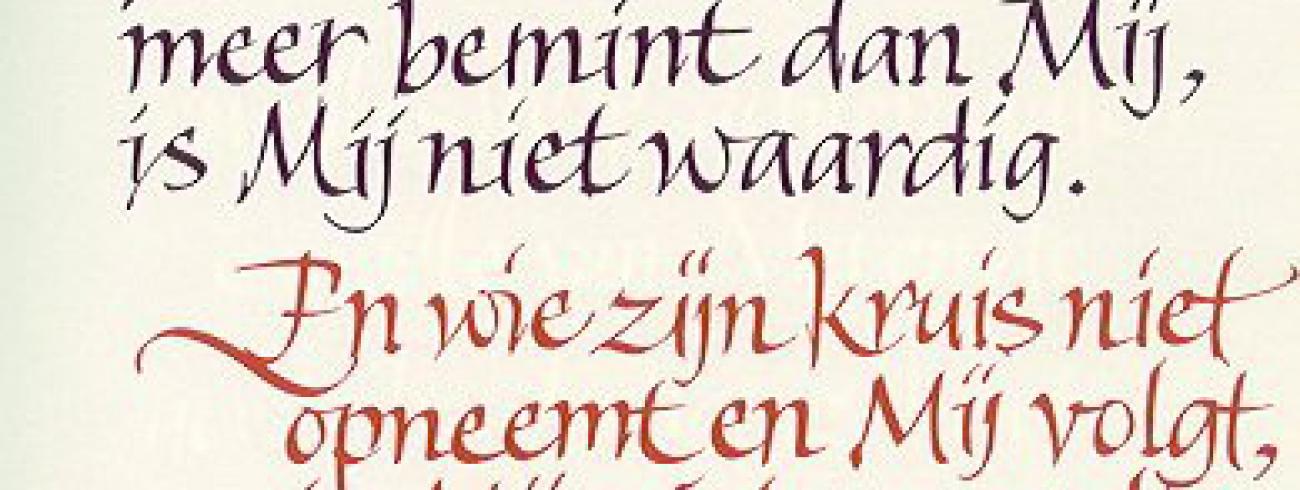 meer bemint dan Mij,
is Mij niet waardig.
En wie zijn kruis niet
opneemt en Mij volgt,